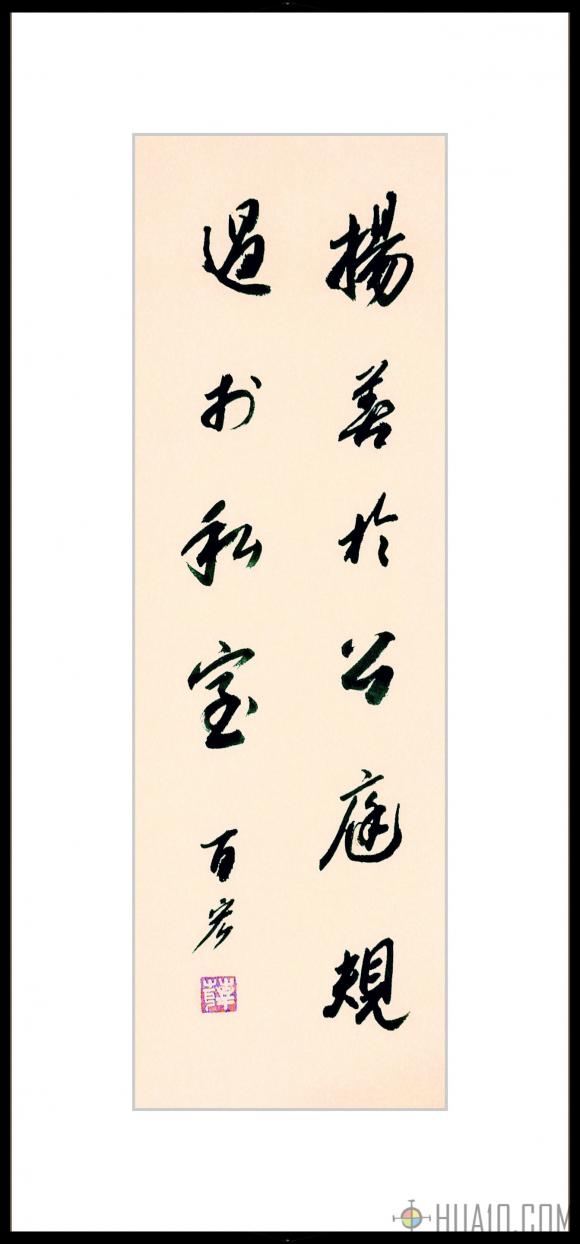 揚善於公庭規
過於私室
百宏
HUA10.COM